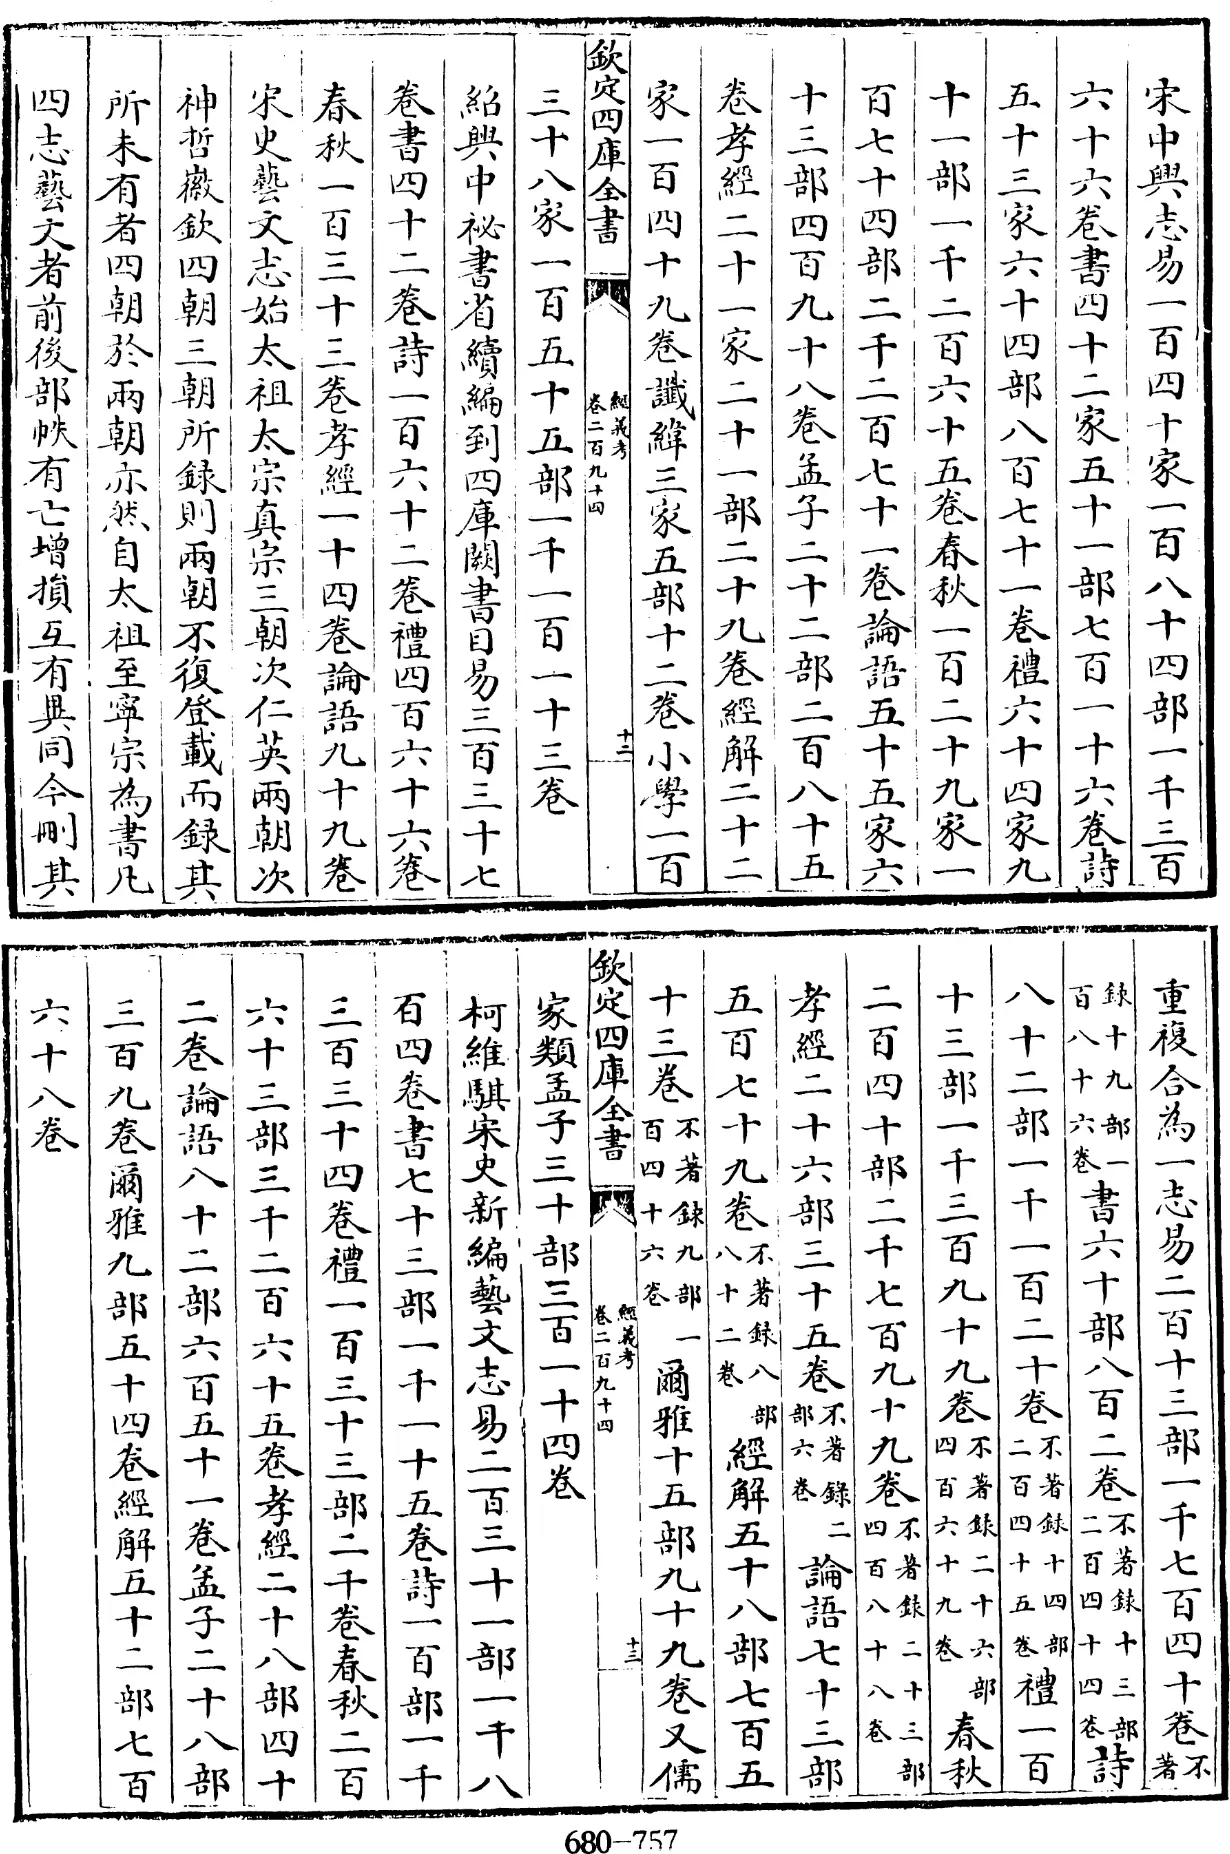 宋中興志易一百四十家一百八十四部一千三百
六十六卷書四十二家五十一部七百一十六卷詩
五十三家六十四部八百七十一卷禮六十四家九
十一部一千二百六十五卷春秋一百二十九家一
百七十四部二千二百七十一卷論語五十五家六
十三部四百九十八卷孟子二十二部二百八十五
卷孝經二十一家二十一部二十九卷經解二十二
家一百四十九卷讖緯三家五部十二卷小學一百
欽定四庫全書
經義考
卷二百九十四
十二
三十八家一百五十五部一千一百一十三卷
紹興中祕書省續編到四庫闕書目易三百三十七
卷書四十二卷詩一百六十二卷禮四百六十六卷
春秋一百三十三卷孝經一十四卷論語九十九卷
宋史藝文志始太祖太宗真宗三朝次仁英兩朝次
神哲徽欽四朝三朝所録則兩朝不復登載而録其
所未有者四朝於兩朝亦然自太祖至寧宗為書凡
四志藝文者前後部帙有亡增損互有異同今刪其
重複合為一志易二百十三部一千七百四十卷不著
録十九部一百八十六卷書六十部八百二卷不著録十三部二百四十四卷詩
八十二部一千一百二十卷不著録十四部二百四十五卷禮一百
十三部一千三百九十九卷不著録二十六部四百六十九卷春秋
二百四十部二千七百九十九卷不著録二十三部四百八十八卷
孝經二十六部三十五卷不著錄二部六卷論語七十三部
五百七十九卷不著録八部八十二卷經解五十八部七百五
十三卷不著録九部一百四十六卷爾雅十五部九十九卷又儒
欽定四庫全書
經義考
卷二百九十四
十三
家類孟子三十部三百一十四卷
柯維騏宋史新編藝文志易二百三十一部一千八
百四卷書七十三部一千一十五卷詩一百部一千
三百三十四卷禮一百三十三部二千卷春秋二百
六十三部三千二百六十五卷孝經二十八部四十
二卷論語八十二部六百五十一卷孟子二十八部
三百九卷爾雅九部五十四卷經解五十二部七百
六十八卷
680-757